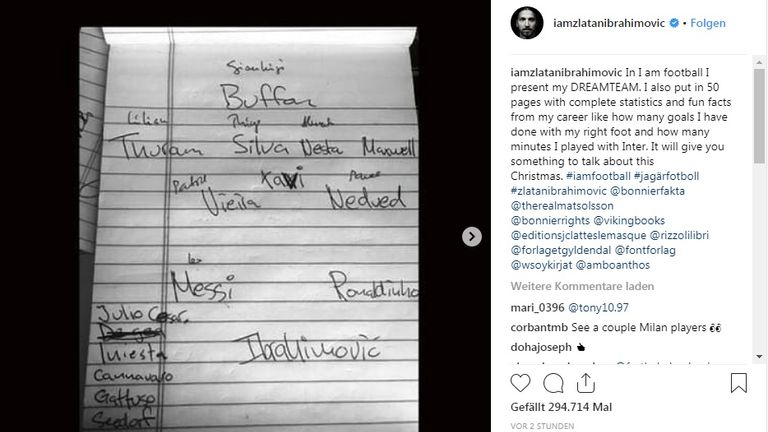 Gianluigi
Buffon
Lilian Thiago
Thuram Silva Nesta Maxwell
Patrick Xavi Pavel
Vieira Nedved
Leo
Messi Ronaldinho
Julio Cesar
De gea
Iniesta Ibrahimović
Cannavaro
Gattuso
Seedorf
iamzlatanibrahimovic • Folgen
iamzlatanibrahimovic In I am football I
present my DREAMTEAM. I also put in 50
pages with complete statistics and fun facts
from my career like how many goals I have
done with my right foot and how many
minutes I played with Inter. It will give you
something to talk about this
Christmas. #iamfootball #jagärfotboll
#zlatanibrahimovic @bonnierfakta
@therealmatsolsson
@bonnierrights @vikingbooks
@editionsjclatteslemasque @rizzolilibri
@forlagetgyldendal @fontforlag
@wsoykirjat @amboanthos
Weitere Kommentare laden
mari_0396 @tony10.97
corbantmb See a couple Milan players 👀
dohajoseph
Gefällt 294.714 Mal
VOR 2 STUNDEN